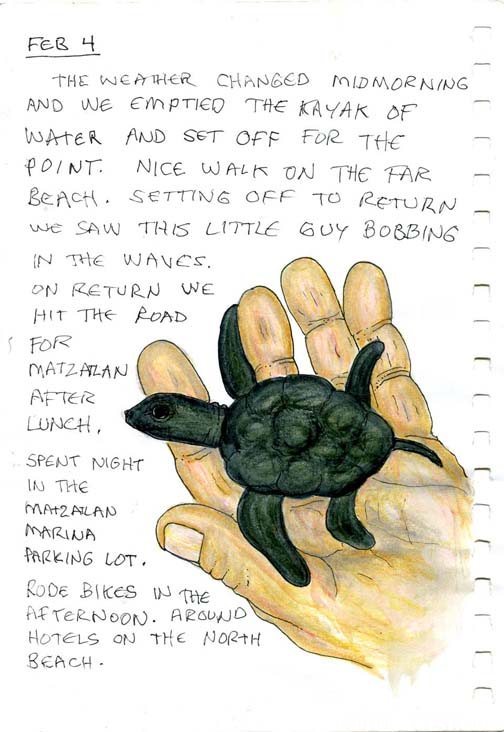 FEB 4
THE WEATHER CHANGED MIDMORNING
AND WE EMPTIED THE KAYAK OF
WATER AND SET OFF FOR THE
POINT. NICE WALK ON THE FAR
BEACH. SETTING OFF TO RETURN
WE SAW THIS LITTLE GUY BOBBING
IN THE WAVES.
ON RETURN WE
HIT THE ROAD
FOR
MATZATLAN
AFTER
LUNCH.
SPENT NIGHT
IN THE
MATZALAN
MARINA
PARKING LOT.
RODE BIKES IN THE
AFTERNOON. AROUND
HOTELS ON THE NORTH
BEACH.